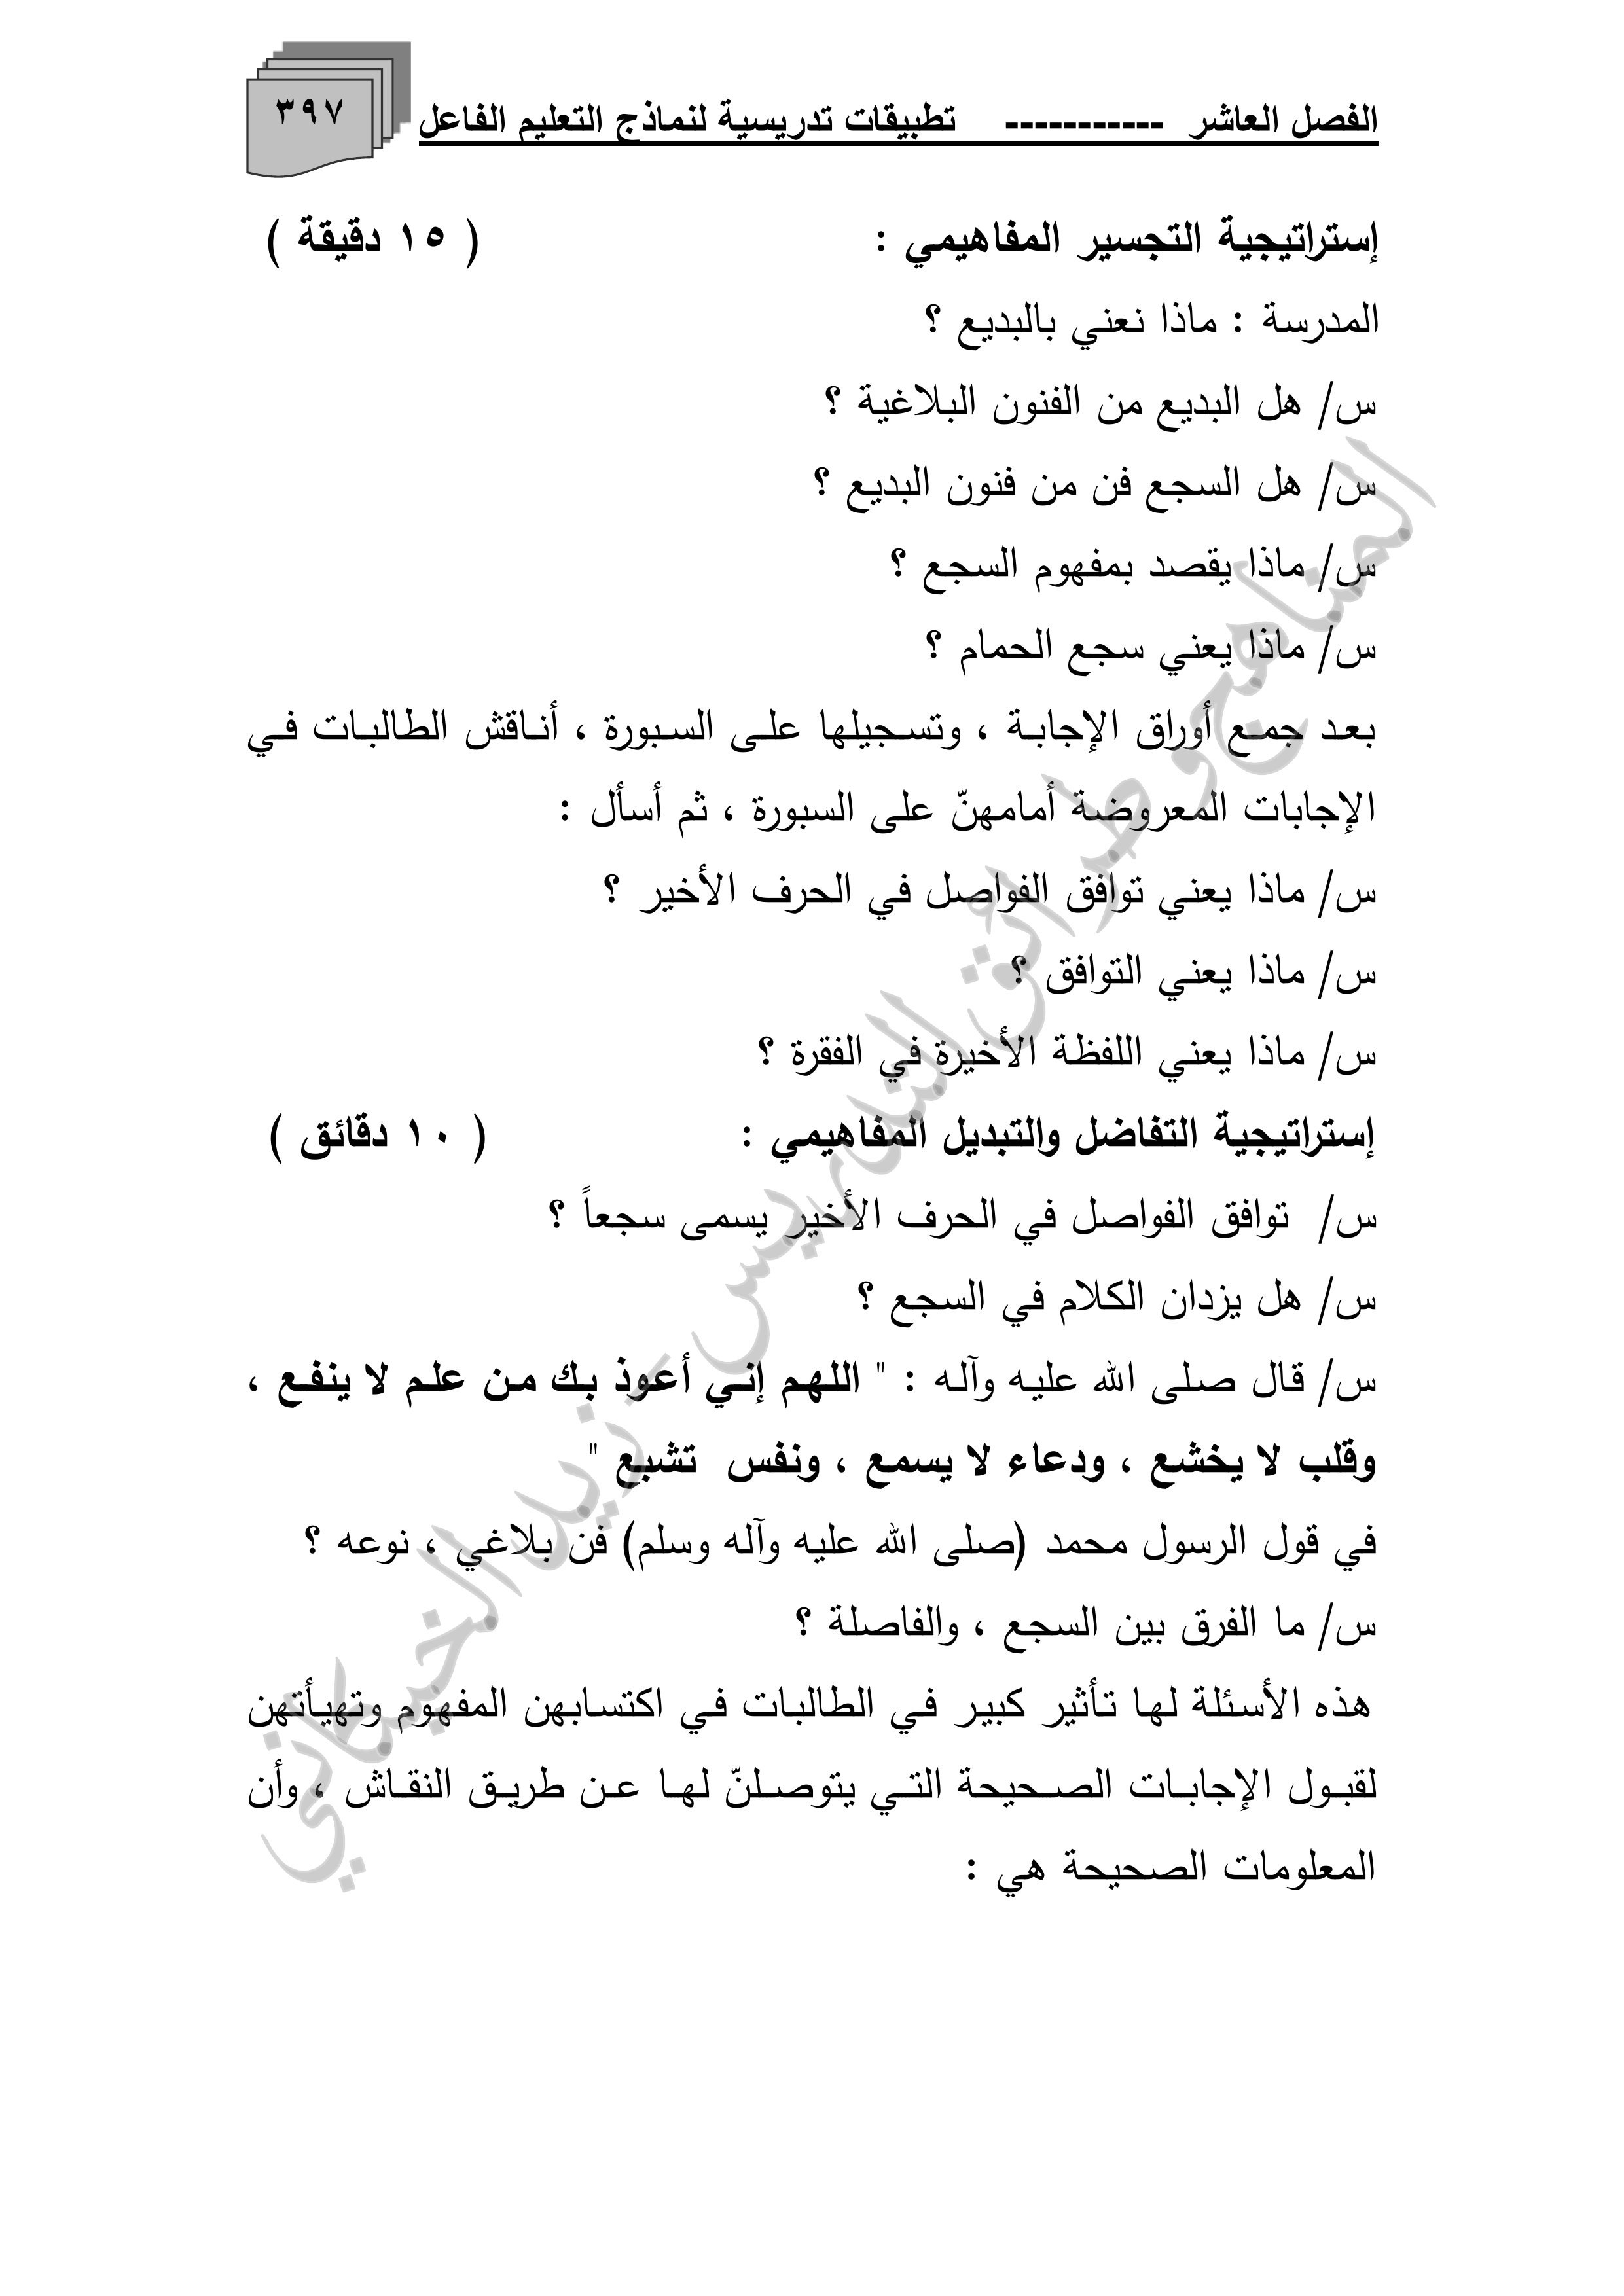 الفصل العاشر ----------- تطبيقات تدريسية لنماذج التعليم الفاعل
٣٩٧
إستراتيجية التجسير المفاهيمي : ( ١٥ دقيقة )
المدرسة : ماذا نعني بالبديع ؟
س/ هل البديع من الفنون البلاغية ؟
س/ هل السجع فن من فنون البديع ؟
س/ ماذا يقصد بمفهوم السجع ؟
س/ ماذا يعني سجع الحمام ؟
بعد جمع أوراق الإجابة ، وتسجيلها على السبورة ، أناقش الطالبات في
الإجابات المعروضة أمامهنّ على السبورة ، ثم أسأل :
س/ ماذا يعني توافق الفواصل في الحرف الأخير ؟
س/ ماذا يعني التوافق ؟
س/ ماذا يعني اللفظة الأخيرة في الفقرة ؟
إستراتيجية التفاضل والتبديل المفاهيمي : ( ١٠ دقائق )
س/ توافق الفواصل في الحرف الأخير يسمى سجعاً ؟
س/ هل يزدان الكلام في السجع ؟
س/ قال صلى الله عليه وآله : " اللهم إني أعوذ بك من علم لا ينفع ،
وقلب لا يخشع ، ودعاء لا يسمع ، ونفس تشبع "
في قول الرسول محمد (صلى الله عليه وآله وسلم) فن بلاغي ، نوعه ؟
س/ ما الفرق بين السجع ، والفاصلة ؟
هذه الأسئلة لها تأثير كبير في الطالبات في اكتسابهن المفهوم وتهيأتهن
لقبول الإجابات الصحيحة التي يتوصلنّ لها عن طريق النقاش ، وأن
المعلومات الصحيحة هي :
المناهج وطرائق التدريس - زيد الخيكاني